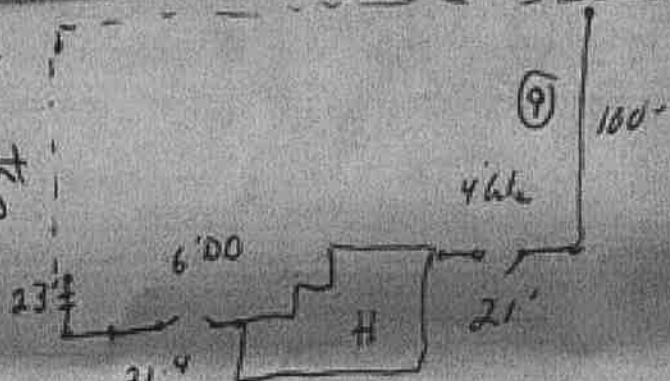 9
100'
4'
6'DD
23'
H
21'